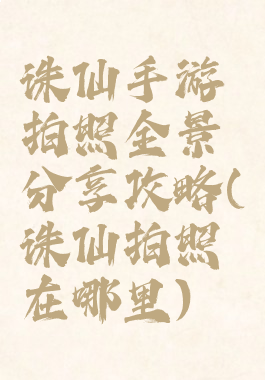 诛仙手游
拍照全景
分享攻略(
诛仙拍照
在哪里)